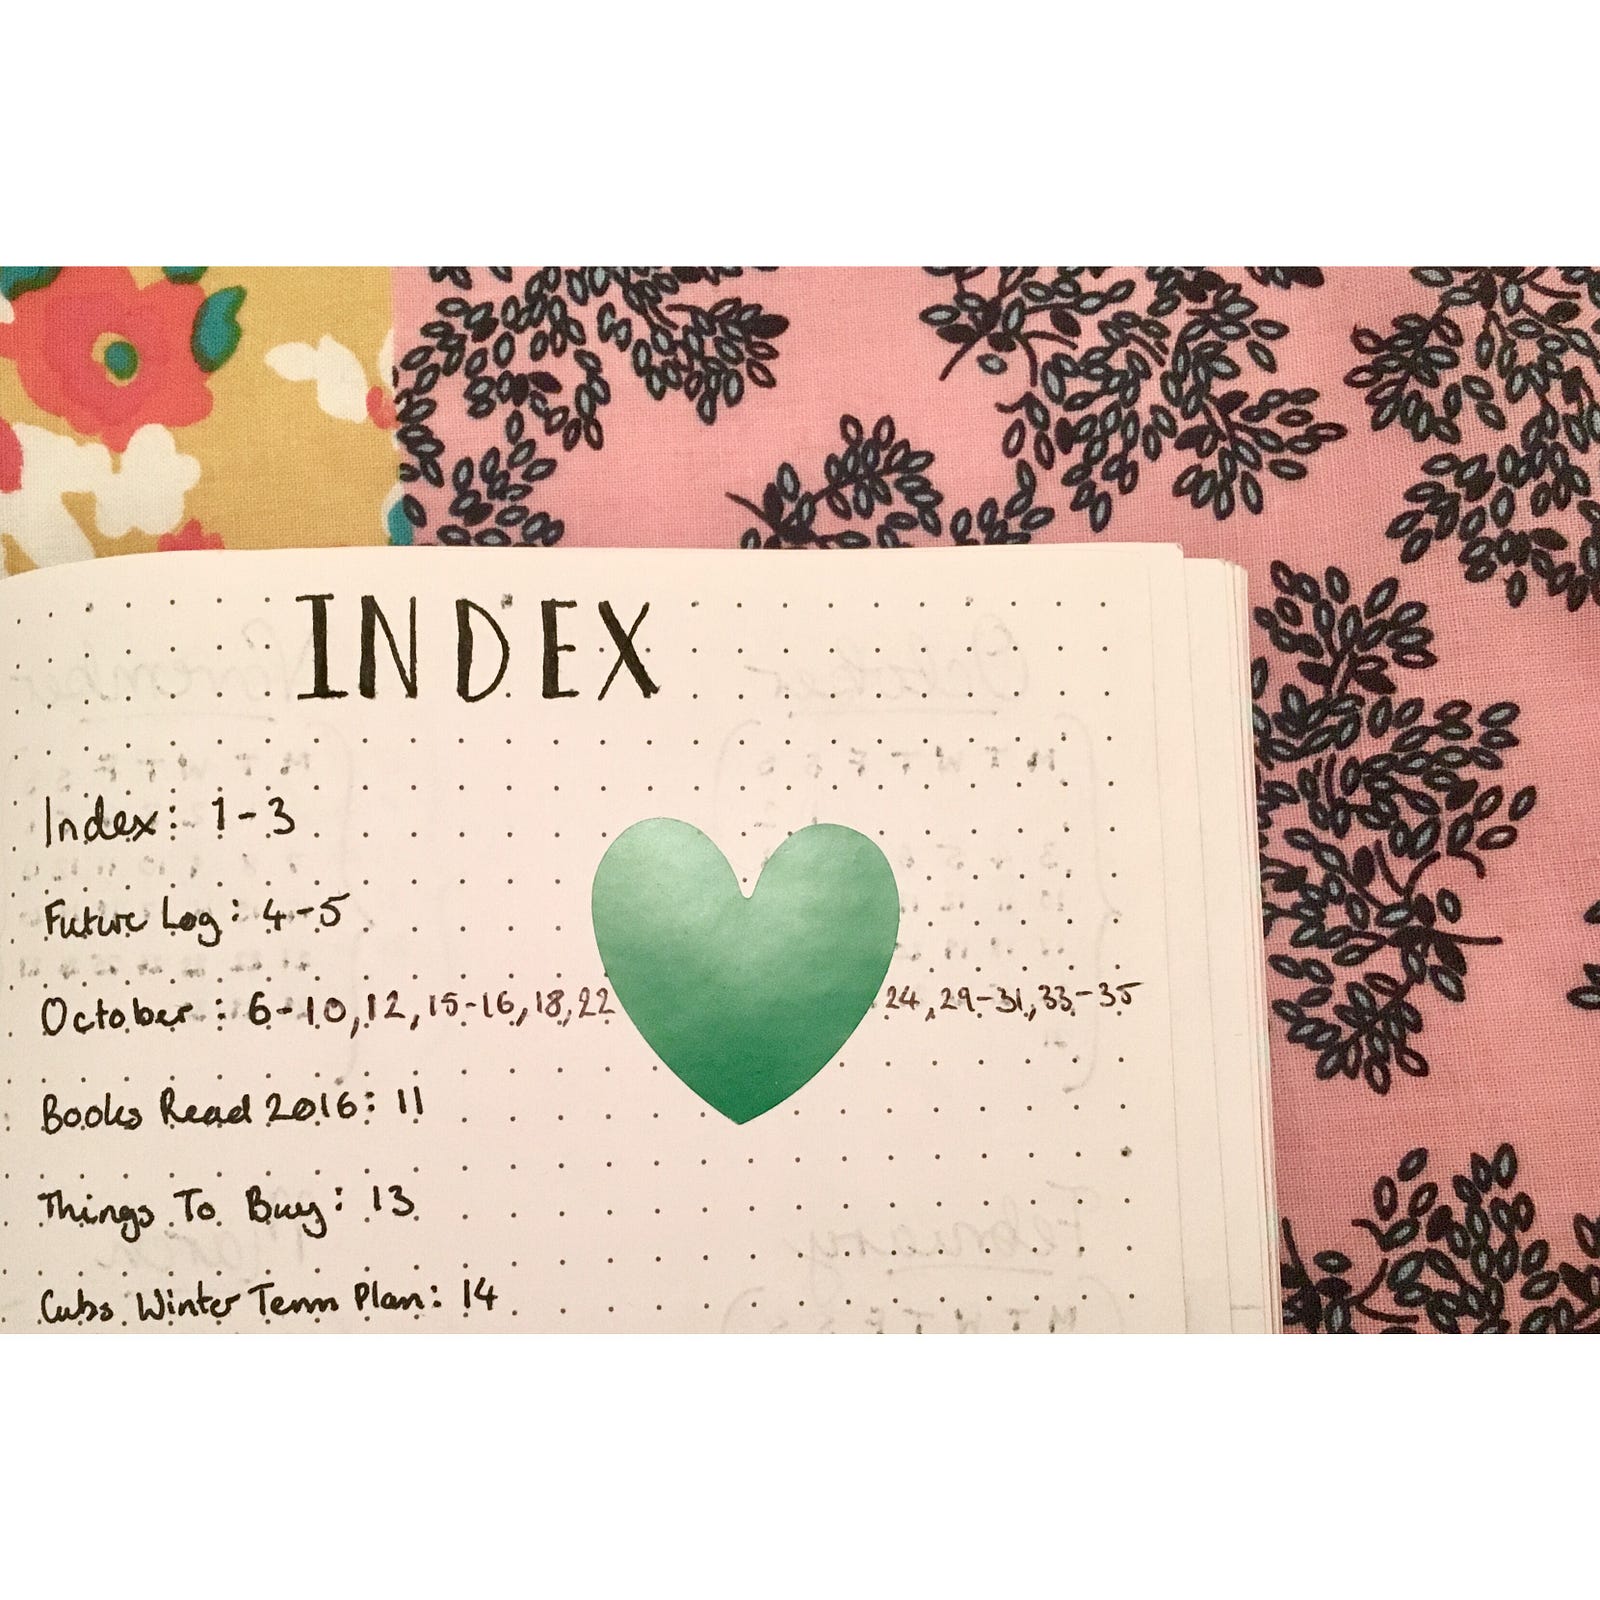 INDEX
Index: 1-3
Future Log: 4-5
October: 6-10, 12, 15-16, 18, 22 24, 29-31, 33-35
Books Read 2016: 11
Things To Buy: 13
Cubs Winter Term Plan: 14
November October
M T W T F S S
February
March
M T W T F S S